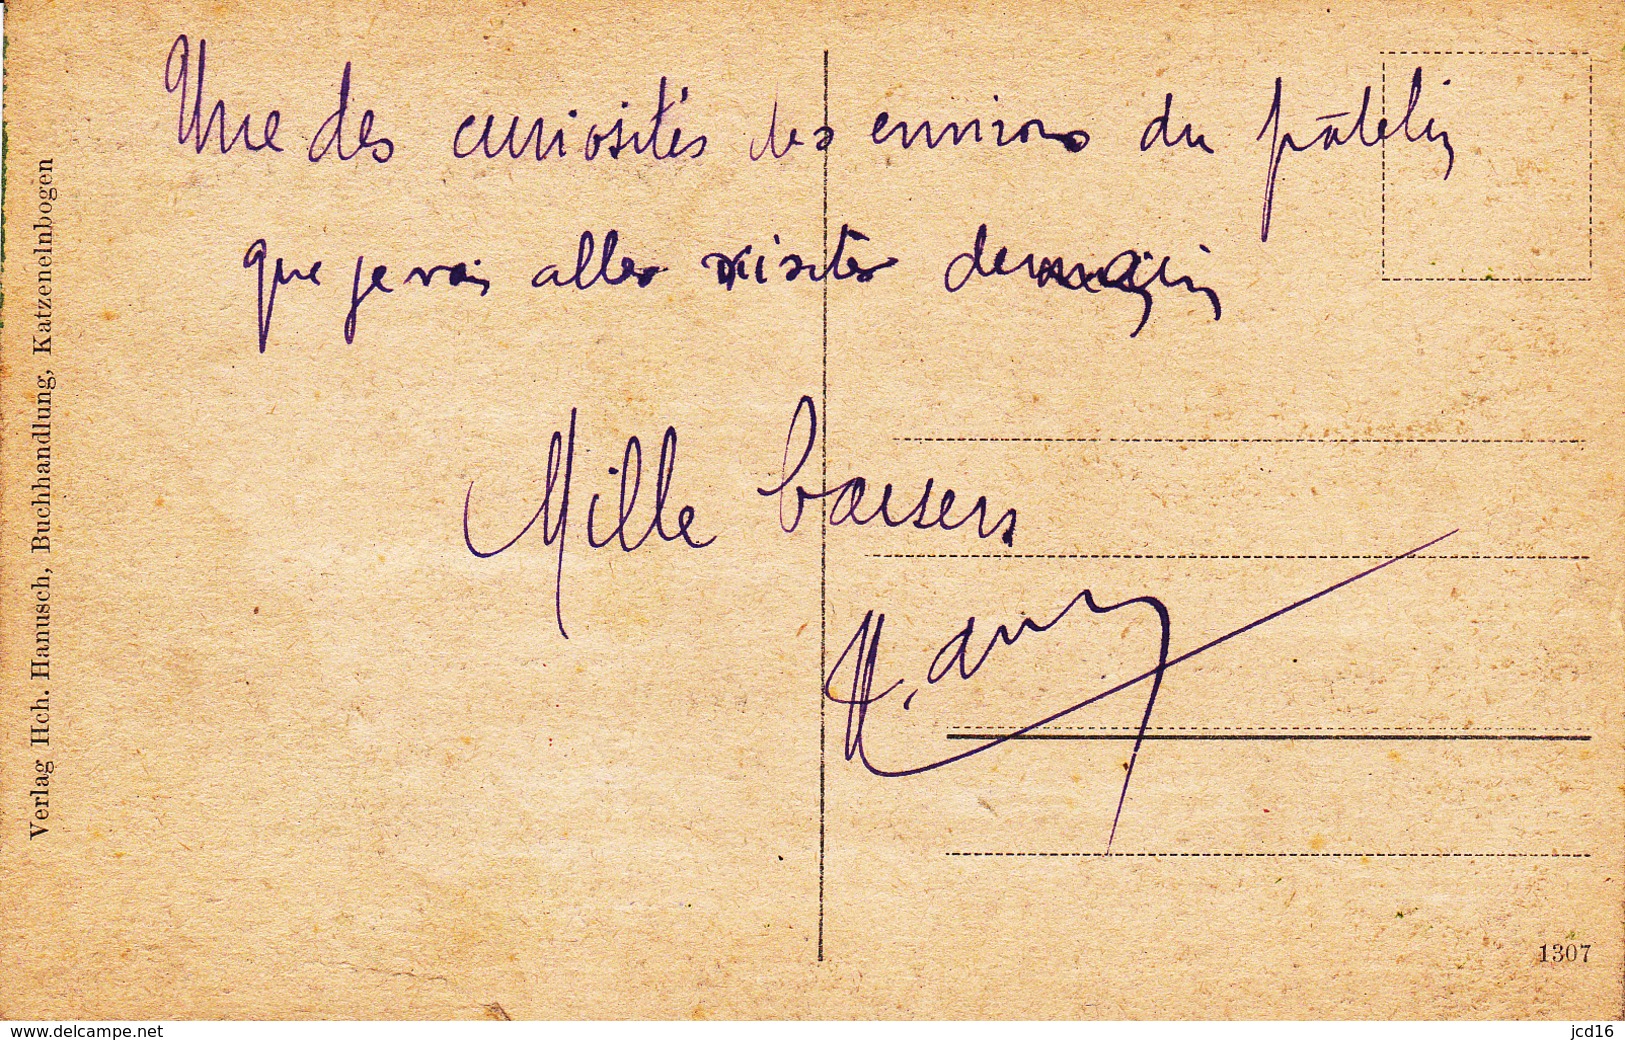 Une des curiosités des environs du pâtelin
que je vais aller visiter demain
Mille baisers
Verlag Hch. Hanusch, Buchhandlung, Katzenelnbogen
1307
www.delcampe.net
jcd16